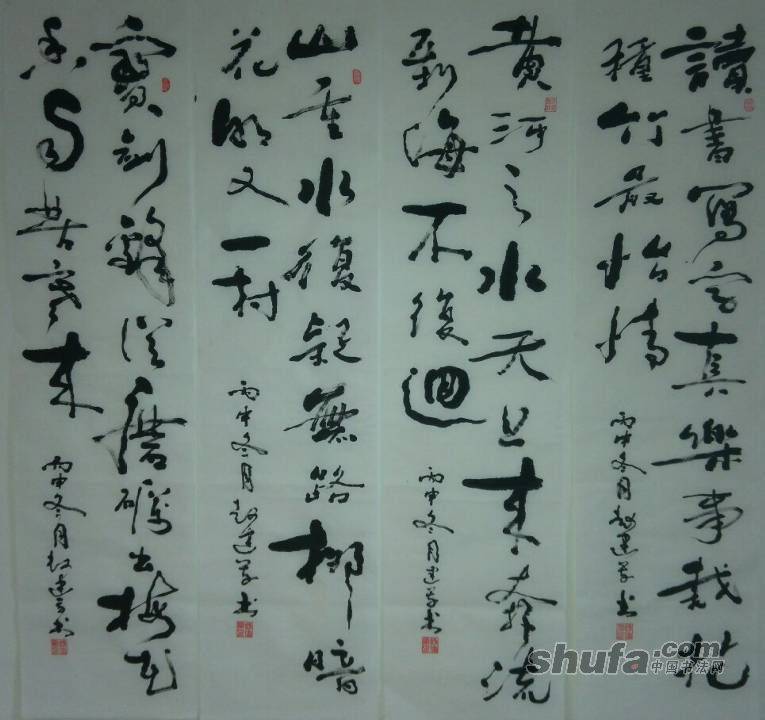 讀書寫字真樂事栽花
種竹最怡情
丙申冬月赵建书
黄河之水天上来奔流
到海不復迴
丙申冬月建书
山重水復疑無路柳暗
花明又一村
丙申冬月赵建书
寶劍鋒從磨礪出梅花
香自苦寒来
丙申冬月赵建书
shufa.com
中国书法网